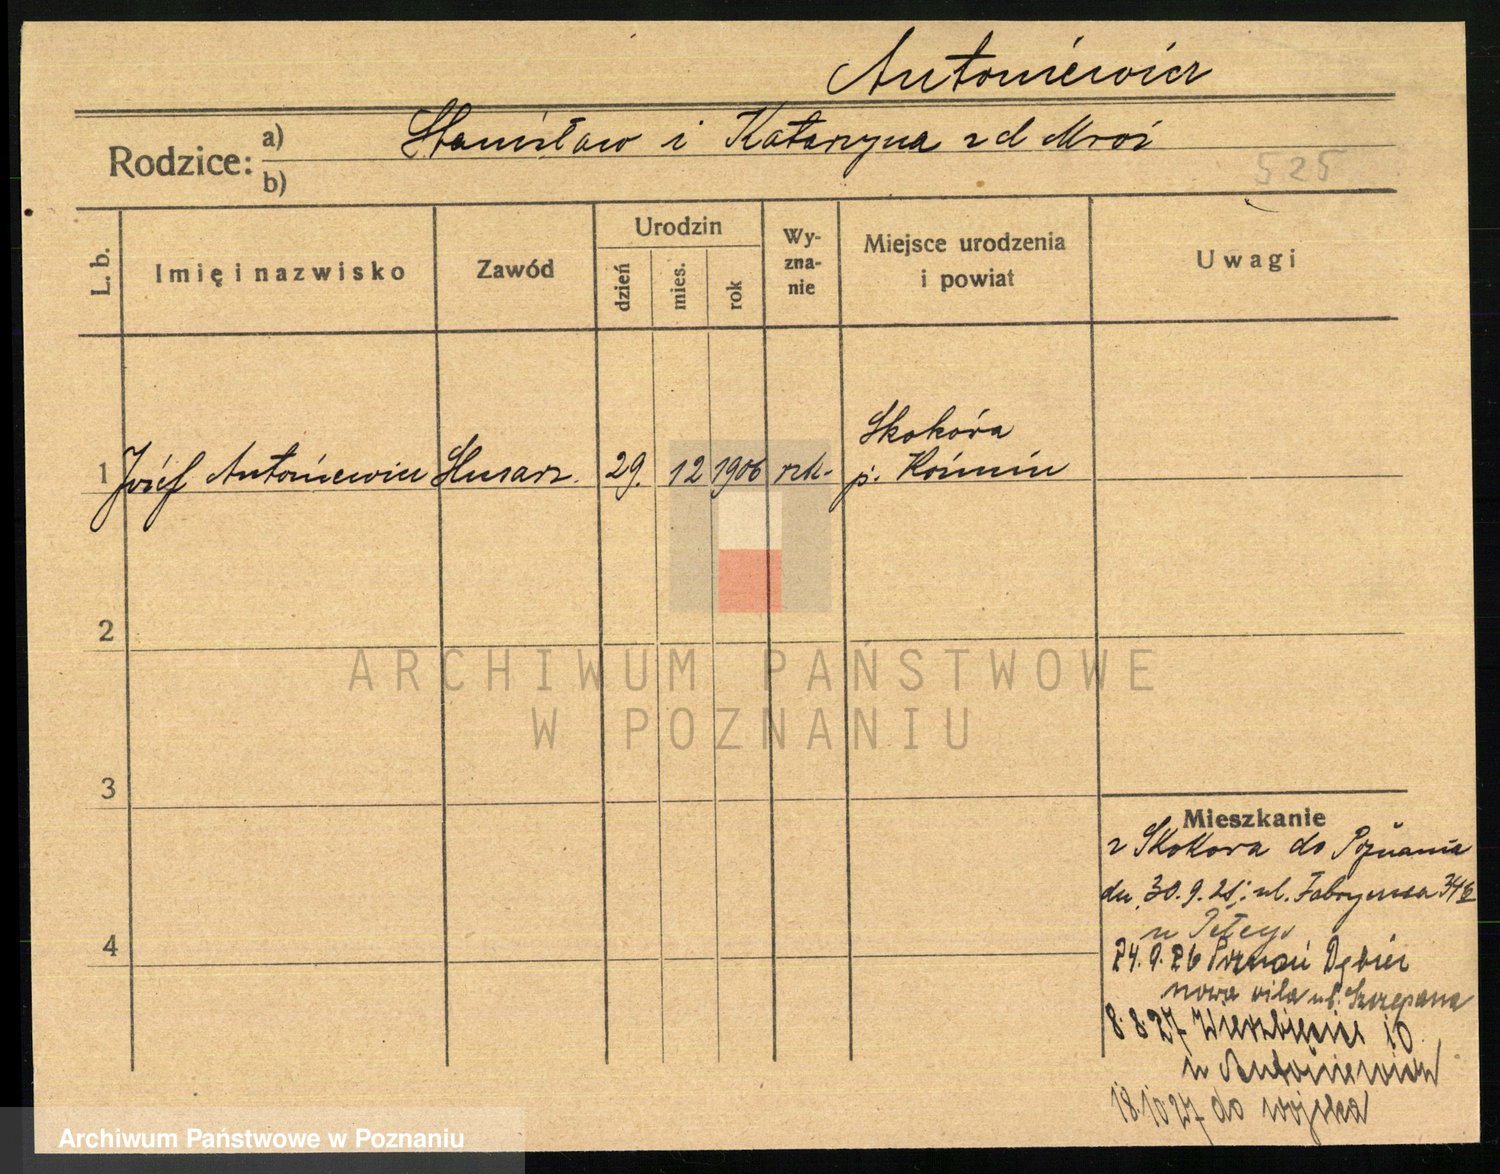 Antoniewicz
Rodzice: a) Stanisław i Katarzyna z d Mroź
b)
525
L. b.
Imię i nazwisko
Zawód
Urodzin
dzień
mies.
rok
Wy-
zna-
nie
Miejsce urodzenia
i powiat
Uwagi
Skokóra
1 Józef Antoniewicz 29. 12 1906 rzk- p. Koźmin
2
ARCHIWUM PAŃSTWOWE
W POZNANIU
3
Mieszkanie
z Skokora do Poznania
dn. 30.9.25. ul. Fabryczna 34
4
24.9.26 Poznań Dębiec
nowa vila ul. Szczepana
8.8.27 Wierzbięcice 10
u Antoniewicz
18.10 27 do wojska
Archiwum Państwowe w Poznaniu